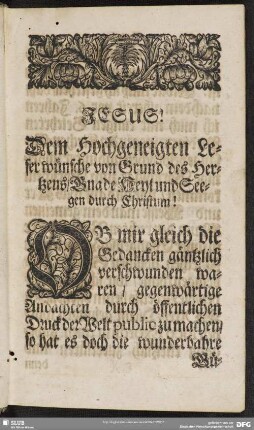 JESUS!
Dem Hochgeneigten Le-
ser wünsche von Grund des Her-
tzens/ Gnade/ Heyl und See-
gen durch Christum!
OB mir gleich die
Gedancken gäntzlich
verschwunden wa-
ren / gegenwärtige
Andachten durch öffentlichen
Druck der Welt public zu machen/
so hat es doch die wunderbahre
SLUB
DFG